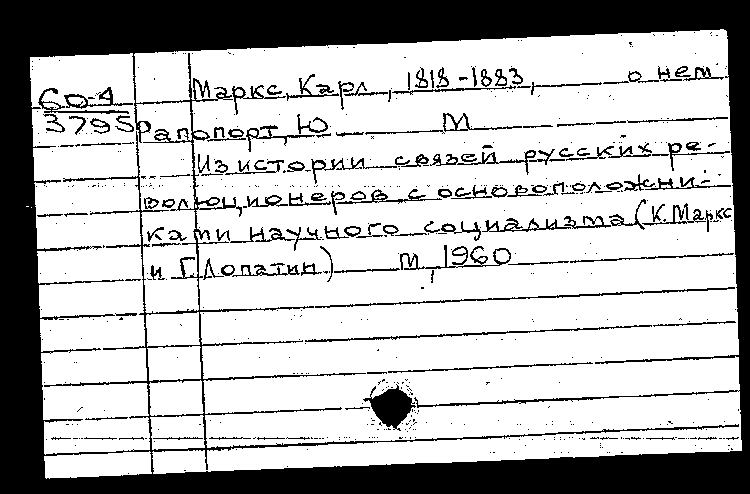 60-4 Маркс, Карл, 1818-1883, о нем
3795 Рапопорт, Ю М
Из истории связей русских ре-
волюционеров с основоположни-
ками научного социализма (К. Маркс
и Г. Лопатин) М, 1960